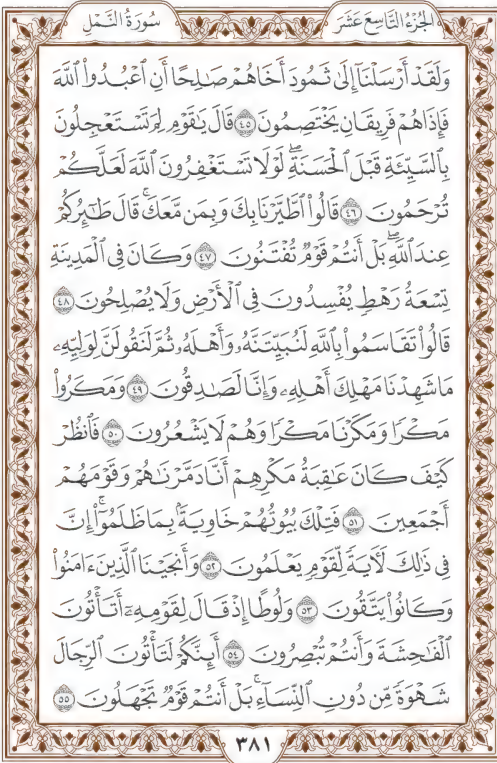 الجُزْءُ التَّاسِعَ عَشَرَ
سُورَةُ النَّمْلِ
وَلَقَدْ أَرْسَلْنَآ إِلَىٰ ثَمُودَ أَخَاهُمْ صَٰلِحًا أَنِ ٱعْبُدُواْ ٱللَّهَ
فَإِذَا هُمْ فَرِيقَانِ يَخْتَصِمُونَ ٤٥ قَالَ يَٰقَوْمِ لِمَ تَسْتَعْجِلُونَ
بِٱلسَّيِّئَةِ قَبْلَ ٱلْحَسَنَةِۖ لَوْلَا تَسْتَغْفِرُونَ ٱللَّهَ لَعَلَّكُمْ
تُرْحَمُونَ ٤٦ قَالُواْ ٱطَّيَّرْنَا بِكَ وَبِمَن مَّعَكَۚ قَالَ طَٰٓئِرُكُمْ
عِندَ ٱللَّهِۖ بَلْ أَنتُمْ قَوْمٌ تُفْتَنُونَ ٤٧ وَكَانَ فِى ٱلْمَدِينَةِ
تِسْعَةُ رَهْطٍ يُفْسِدُونَ فِى ٱلْأَرْضِ وَلَا يُصْلِحُونَ ٤٨
قَالُواْ تَقَاسَمُواْ بِٱللَّهِ لَنُبَيِّتَنَّهُۥ وَأَهْلَهُۥ ثُمَّ لَنَقُولَنَّ لِوَلِيِّهِۦ
مَا شَهِدْنَا مَهْلِكَ أَهْلِهِۦ وَإِنَّا لَصَٰدِقُونَ ٤٩ وَمَكَرُواْ
مَكْرًا وَمَكَرْنَا مَكْرًا وَهُمْ لَا يَشْعُرُونَ ٥٠ فَٱنظُرْ
كَيْفَ كَانَ عَٰقِبَةُ مَكْرِهِمْ أَنَّا دَمَّرْنَٰهُمْ وَقَوْمَهُمْ
أَجْمَعِينَ ٥١ فَتِلْكَ بُيُوتُهُمْ خَاوِيَةًۢ بِمَا ظَلَمُوٓاْۚ إِنَّ
فِى ذَٰلِكَ لَأٓيَةً لِّقَوْمٍ يَعْلَمُونَ ٥٢ وَأَنجَيْنَا ٱلَّذِينَ ءَامَنُواْ
وَكَانُواْ يَتَّقُونَ ٥٣ وَلُوطًا إِذْ قَالَ لِقَوْمِهِۦٓ أَتَأْتُونَ
ٱلْفَٰحِشَةَ وَأَنتُمْ تُبْصِرُونَ ٥٤ أَئِنَّكُمْ لَتَأْتُونَ ٱلرِّجَالَ
شَهْوَةً مِّن دُونِ ٱلنِّسَآءِۚ بَلْ أَنتُمْ قَوْمٌ تَجْهَلُونَ ٥٥
٣٨١